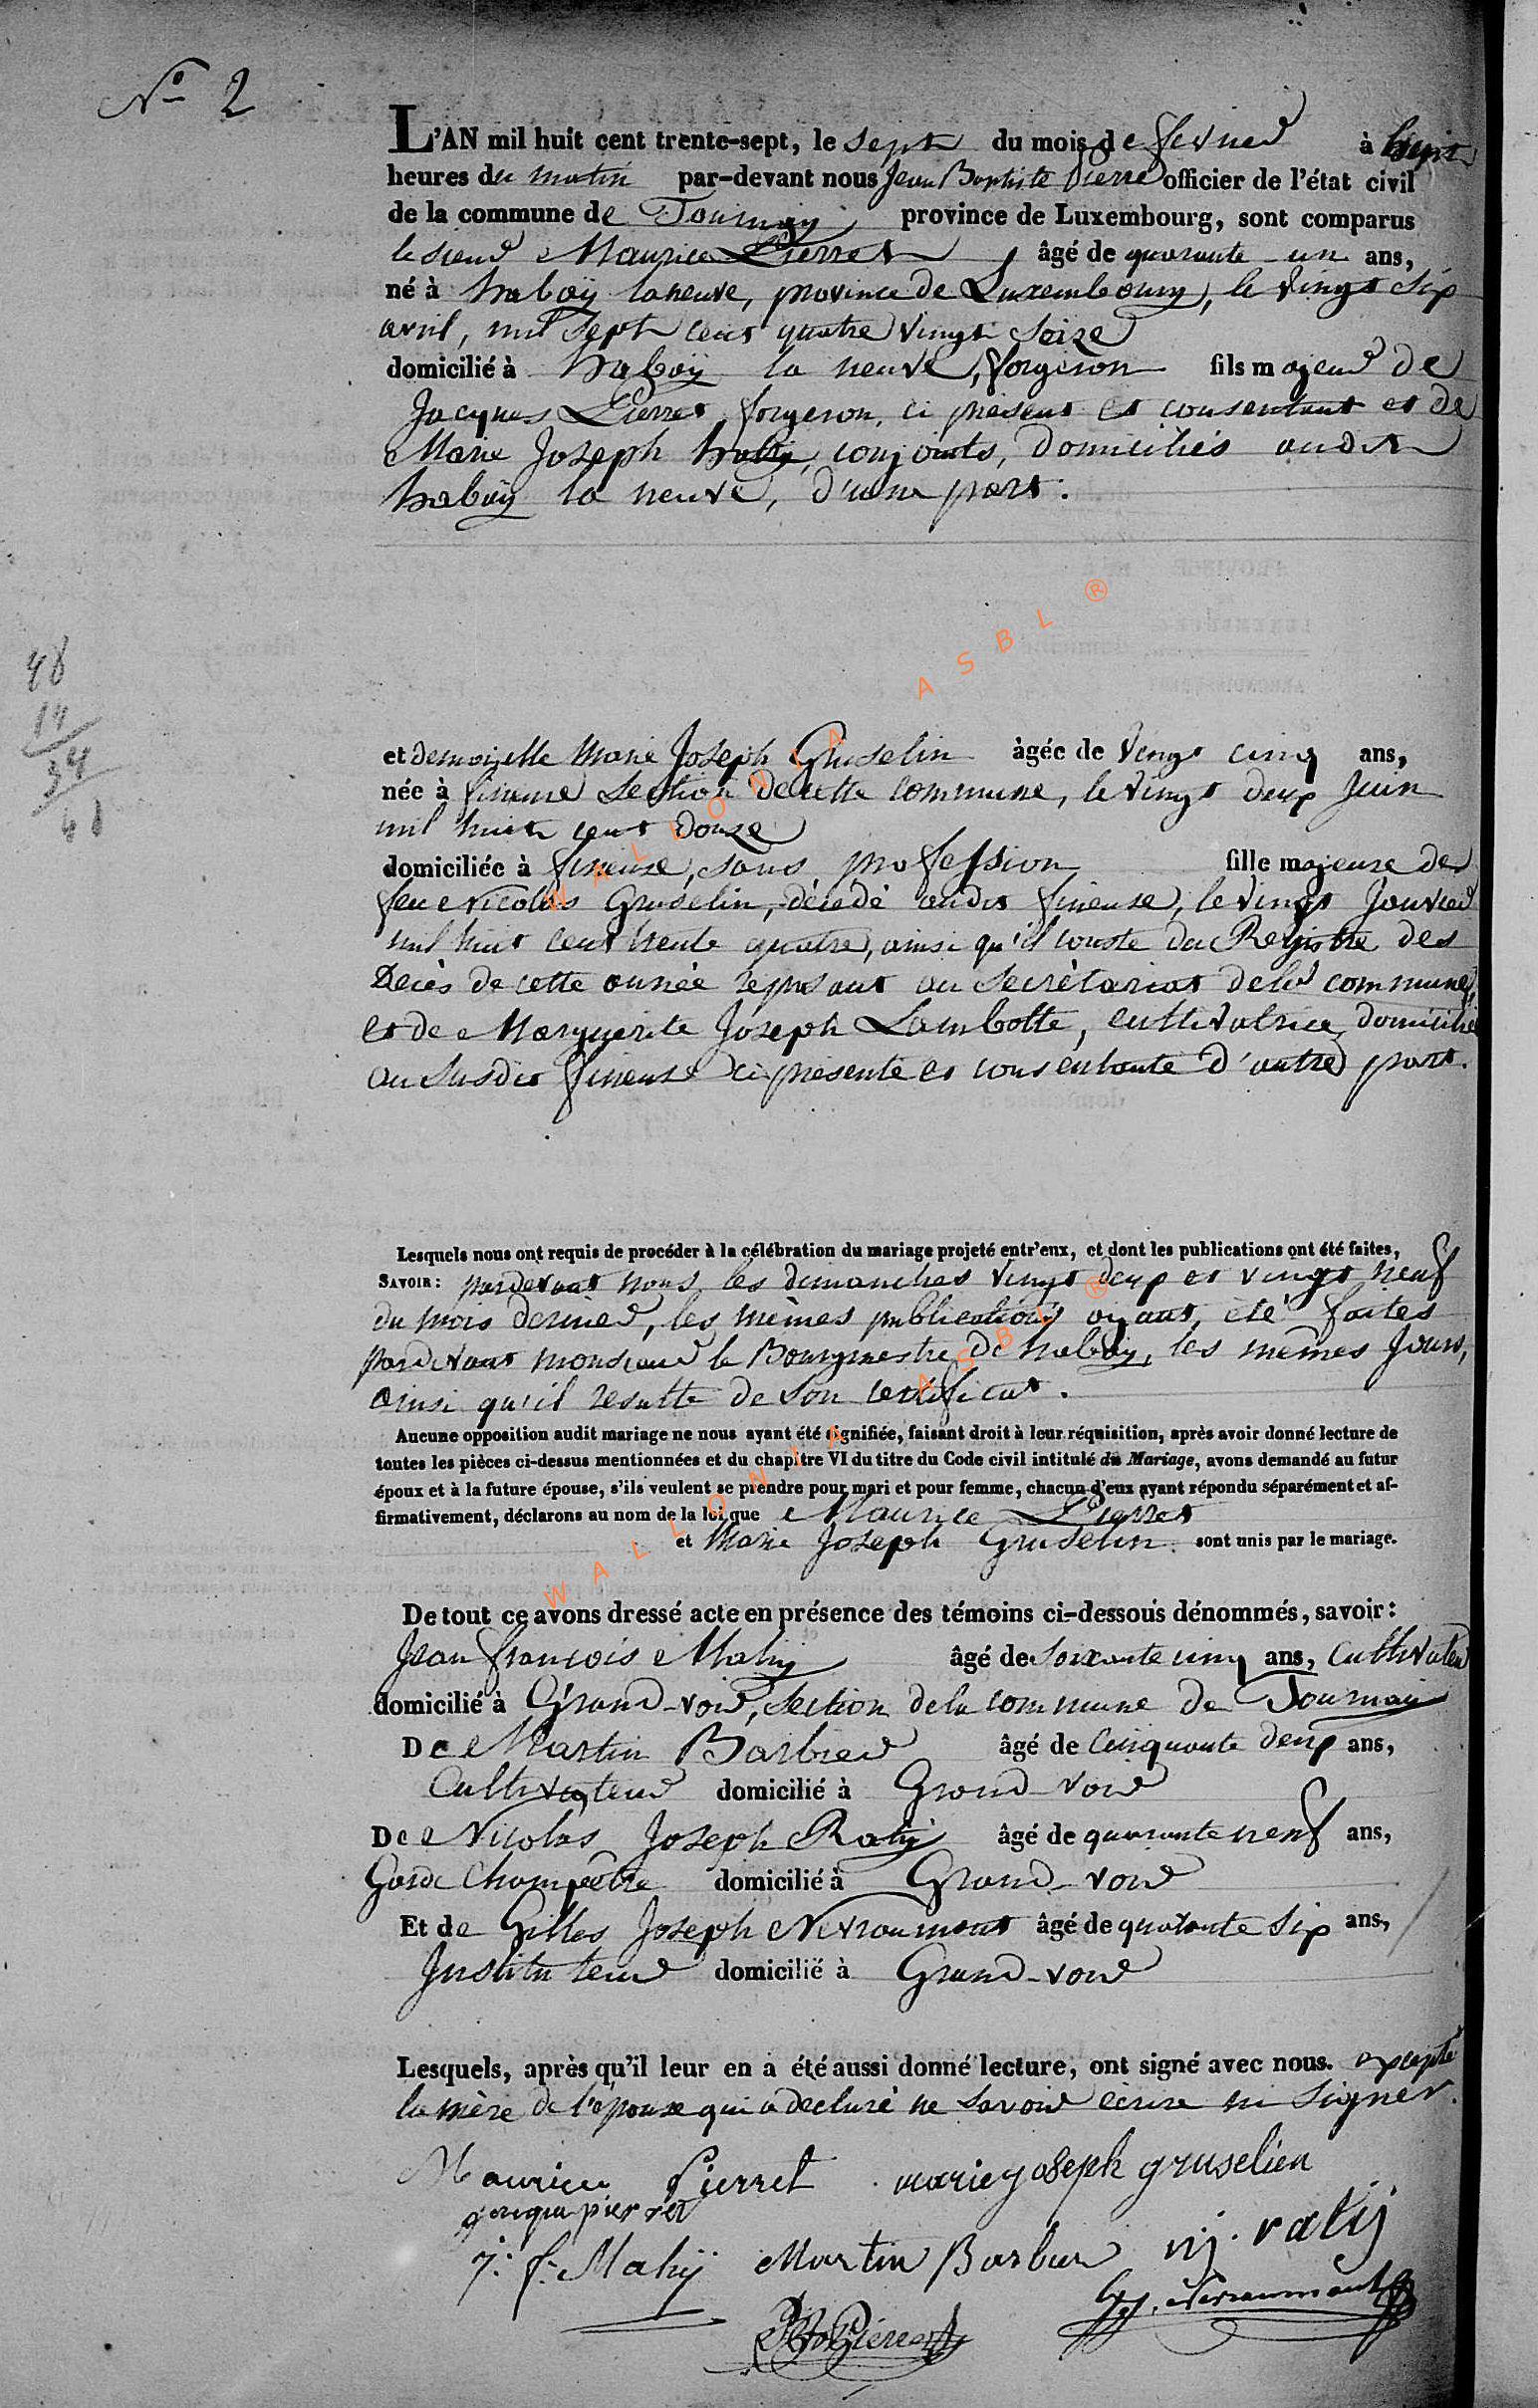 N° 2
L'AN mil huit cent trente-sept, le sept du mois de fevrier à
heures du matin par-devant nous Jean Baptiste Pierre officier de l'état civil
de la commune de Tournay province de Luxembourg, sont comparus
le sieur Maurice Pierret âgé de quarante un ans,
né à habaÿ laneuve, province de Luxembourg, le vingt six
avril, mil sept cent quatre vingt seize
domicilié à habaÿ la neuve, forgeron fils majeur de
Jacques Pierret forgeron, ci présent et consentant et de
Marie Joseph conjoints, domiciliés audit
habaÿ la neuve, d'une part.
48
14
34
48
et demoiselle Marie Joseph Gruselin âgée de vingt cinq ans,
née à fineuse section de cette commune, le vingt deux Juin
mil huit cent douze
domiciliée à fineuse, sans profession fille majeure de
feu Nicolas Gruselin, décédé audit fineuse, le vingt Janvier
mil huit cent trente quatre, ainsi qu'il conste du Registre des
Décès de cette année reposant au secrétariat de la commune,
et de Marguerite Joseph Lambotte, cultivatrice domiciliée
au susdit fineuse ci présente et consentante d'autre part.
Lesquels nous ont requis de procéder à la célébration du mariage projeté entr'eux, et dont les publications ont été faites,
SAVOIR : pardevant nous les dimanches vingt deux et vingt neuf
du mois dernier, les mêmes publications ayant été faites
pardevant monsieur le Bourgmestre de habaÿ, les mêmes jours,
ainsi qu'il resulte de son certificat.
Aucune opposition audit mariage ne nous ayant été signifiée, faisant droit à leur réquisition, après avoir donné lecture de
toutes les pièces ci-dessus mentionnées et du chapitre VI du titre du Code civil intitulé du Mariage, avons demandé au futur
époux et à la future épouse, s'ils veulent se prendre pour mari et pour femme, chacun d'eux ayant répondu séparément et af-
firmativement, déclarons au nom de la loi que Maurice Pierret
et Marie Joseph Gruselin. sont unis par le mariage.
De tout ce avons dressé acte en présence des témoins ci-dessous dénommés, savoir :
Jean françois Mahy âgé de soixante cinq ans, Cultivateur
domicilié à Grand-voir, section de la commune de Tournay
De Martin Barbier âgé de cinquante deux ans,
Cultivateur domicilié à Grand-voir
De Nicolas Joseph Raty âgé de quarante neuf ans,
Garde Champêtre domicilié à Grand-voir
Et de Gilles Joseph Nevraumont âgé de quarante six ans,
Instituteur domicilié à Grand-voir
Lesquels, après qu'il leur en a été aussi donné lecture, ont signé avec nous. excepté
la mère de l'épouse qui a declaré ne savoir écrire ni signer.
Maurice Pierret marie joseph gruselien
pierret
J: f: Mahÿ Martin Barbier nj. ratij
Nevraumont
WALLONIA ASBL ®
WALLONIA ASBL ®